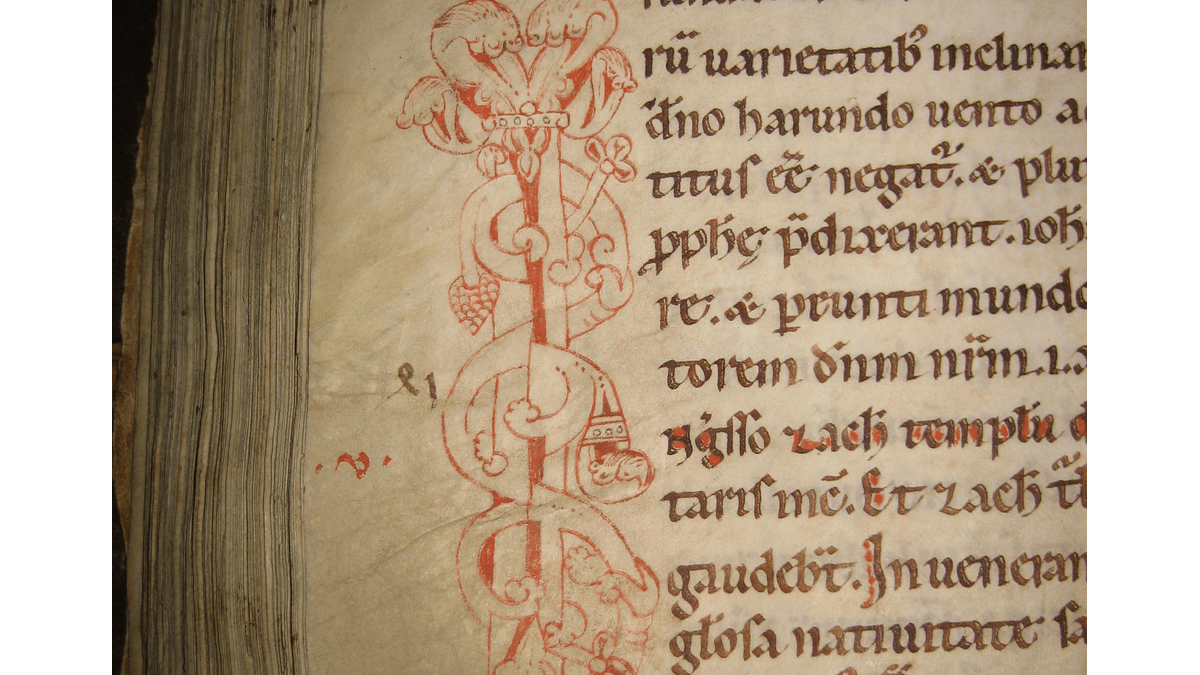 rū uarietatib' inclinar
dn̄o harundo uento a
titus eē̄ negat᷑. & plu
pph̄ę p̄dixerant. ioh
re. & peunti mundo
torem dn̄m nr̄m. i.
zach templū d
taris inc̄. Et zach
gaudebt̄. In ueneran
gl̄osa natiuitate sa